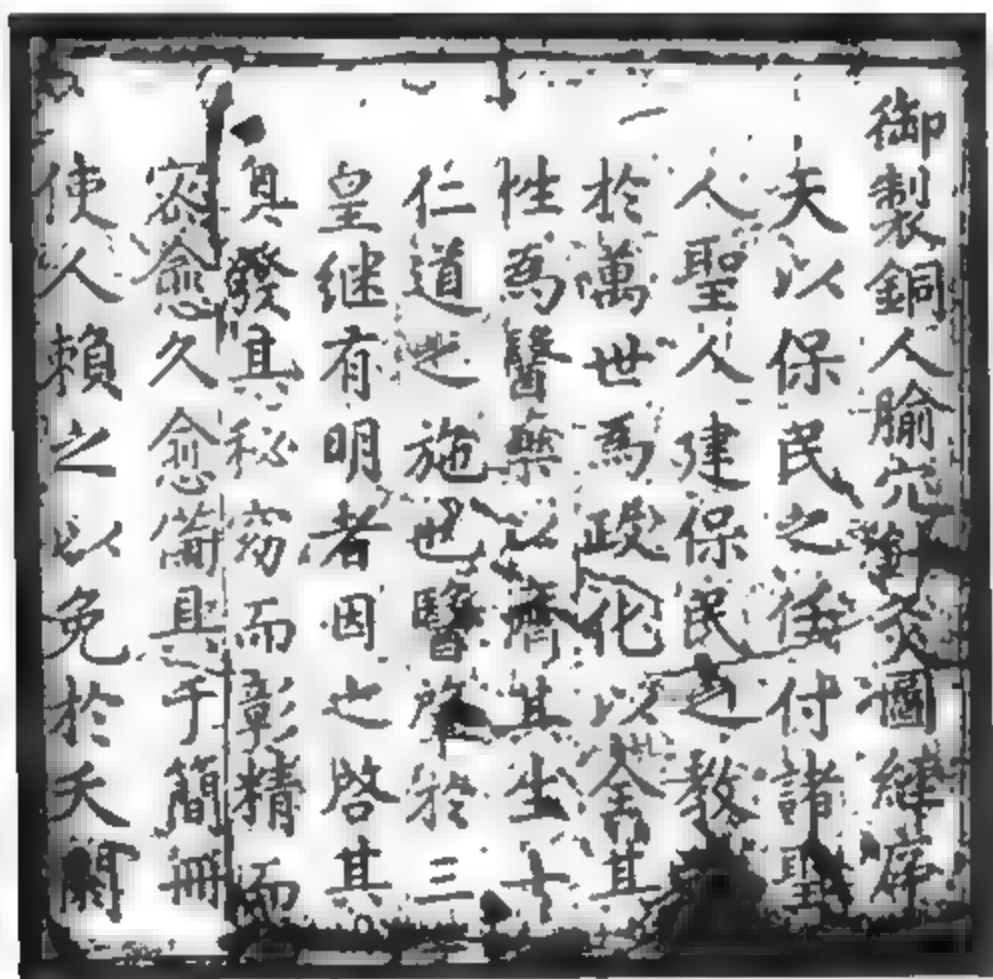 御製銅人腧穴鍼灸圖經序
天以保民之任付諸聖
人聖人建保民之教
於萬世爲政化以全其
性爲醫藥以濟其生一
仁道之施也醫肇於三
皇継有明者因之啓其
奥發其秘窈而彰精而
密愈久愈備具于簡冊
使人賴之以免於夭閼